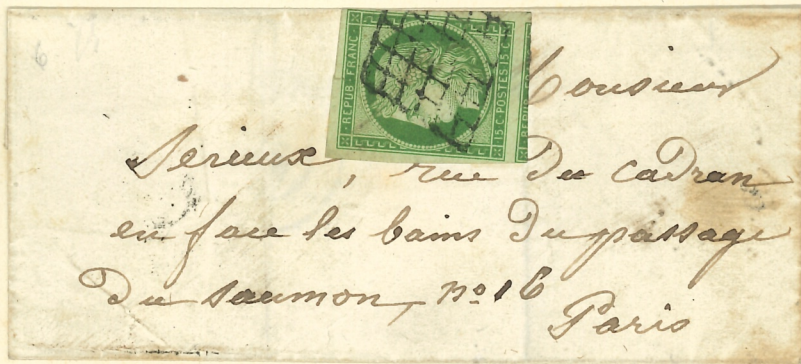 6
REPUB. FRANC.
15 C. POSTES 15 C.
Monsieur
Serieux, rue du cadran
en face les bains du passage
du saumon, nº 16
Paris